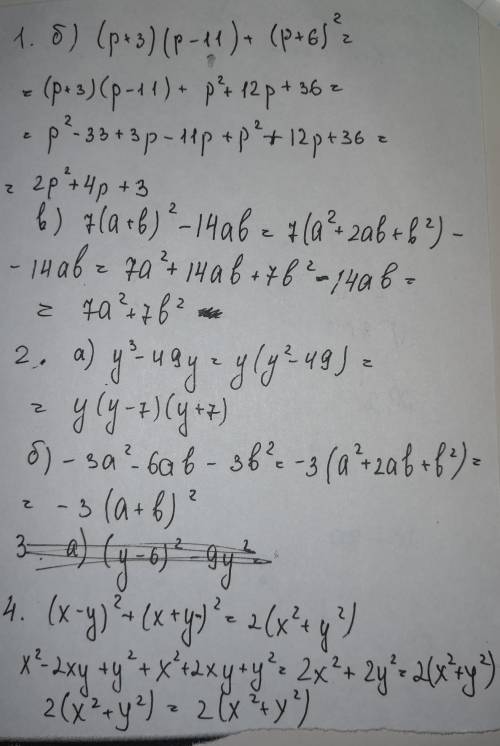 1. б) (p+3)(p-11) + (p+6)² =
= (p+3)(p-11) + p²+12p+36 =
= p²-33+3p-11p+p²+12p+36 =
= 2p²+4p+3
в) 7(a+в)²-14aв = 7(a²+2aв+в²)-
-14aв = 7a²+14aв+7в²-14aв =
= 7a²+7в²
2. a) y³-49y = y(y²-49) =
= y(y-7)(y+7)
б) -3a²-6aв-3в² = -3(a²+2aв+в²) =
= -3(a+в)²
3. a) (y-6)²-9y²
4. (x-y)²+(x+y)² = 2(x²+y²)
x²-2xy+y²+x²+2xy+y² = 2x²+2y² = 2(x²+y²)
2(x²+y²) = 2(x²+y²)